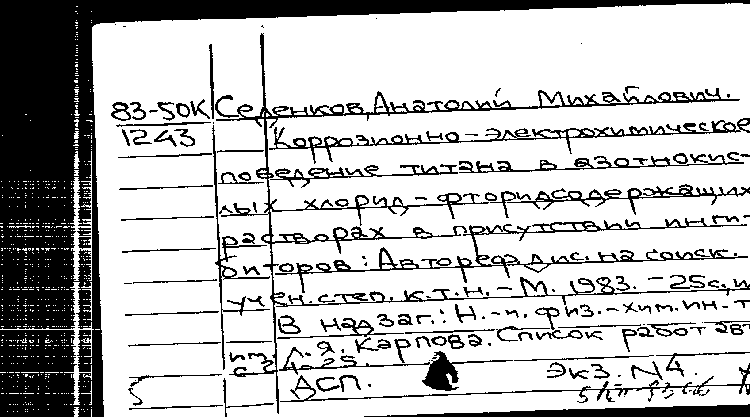 83-50К Селенков, Анатолий Михайлович.
1243 Коррозионно-электрохимическое
поведение титана в азотнокис-
лых хлорид-фторидсодержащих
растворах в присутствии инги-
биторов: Автореф. дис. на соиск.
учен. степ. к.т.н. - М. 1983. - 25с, и
В надзаг.: Н.-и. физ.-хим. ин-т
Л.Я. Карпова. Список работ авт
с 24-25.
5 ДСП. Экз. N4.